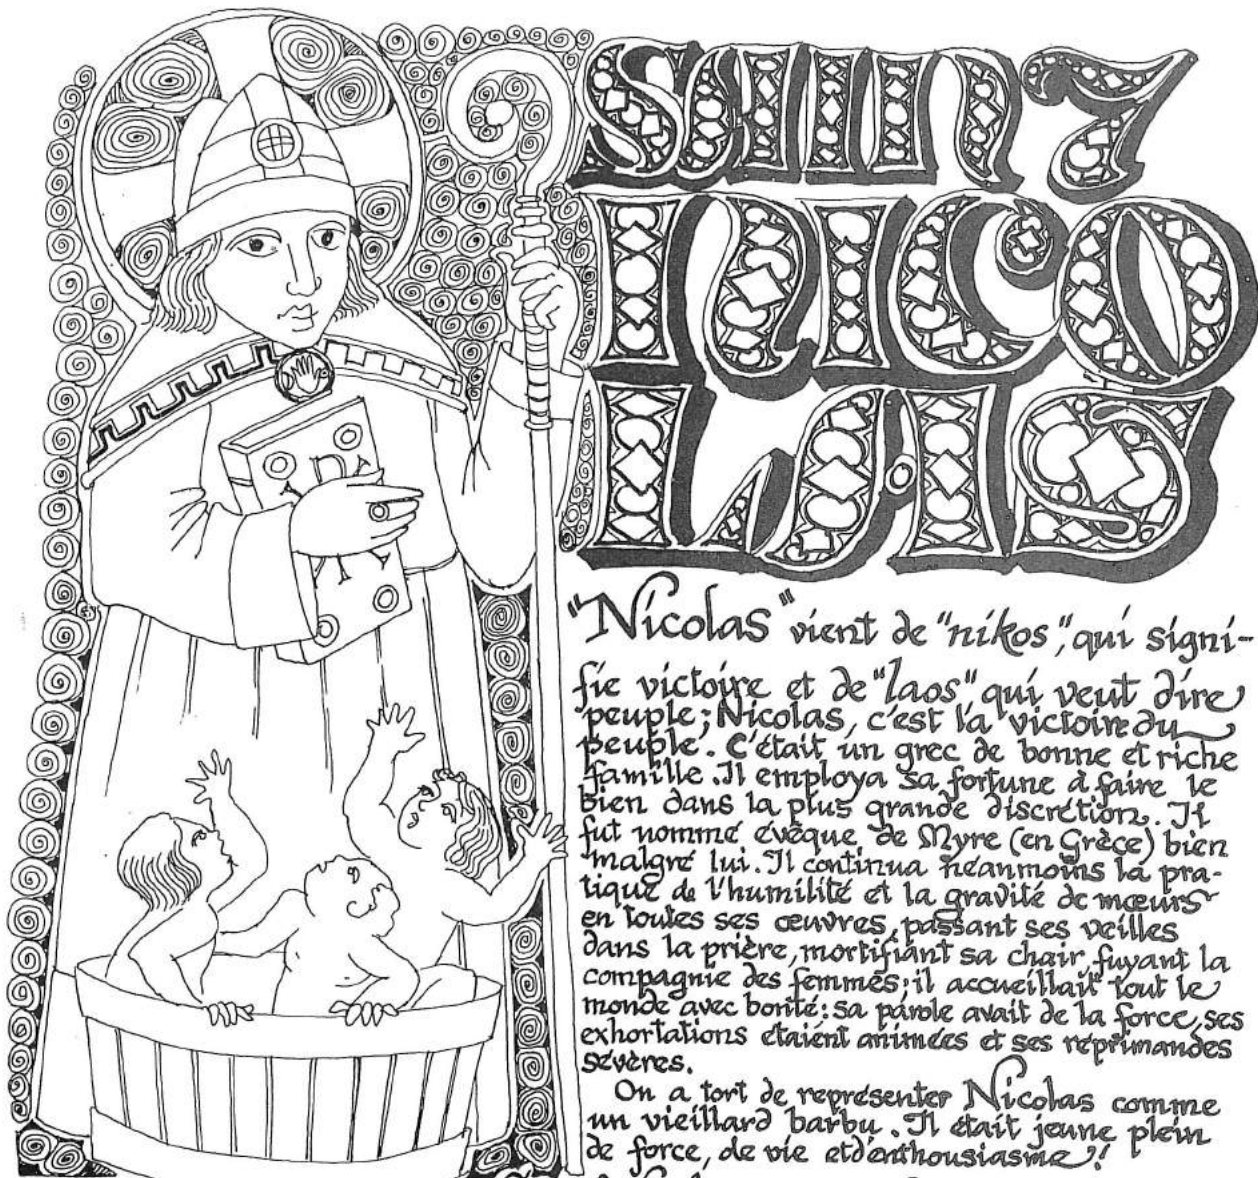 SAINT
NICO
LAS
"Nicolas" vient de "nikos", qui signi-
fie victoire et de "laos" qui veut dire
peuple; Nicolas, c'est la victoire du
peuple. C'était un grec de bonne et riche
famille. Il employa sa fortune à faire le
bien dans la plus grande discrétion. Il
fut nommé évêque de Myre (en Grèce) bien
malgré lui. Il continua néanmoins la pra-
tique de l'humilité et la gravité de mœurs
en toutes ses œuvres, passant ses veilles
dans la prière, mortifiant sa chair, fuyant la
compagnie des femmes; il accueillait tout le
monde avec bonté: sa parole avait de la force, ses
exhortations étaient animées et ses réprimandes
sévères.
On a tort de représenter Nicolas comme
un vieillard barbu. Il était jeune plein
de force, de vie et d'enthousiasme!